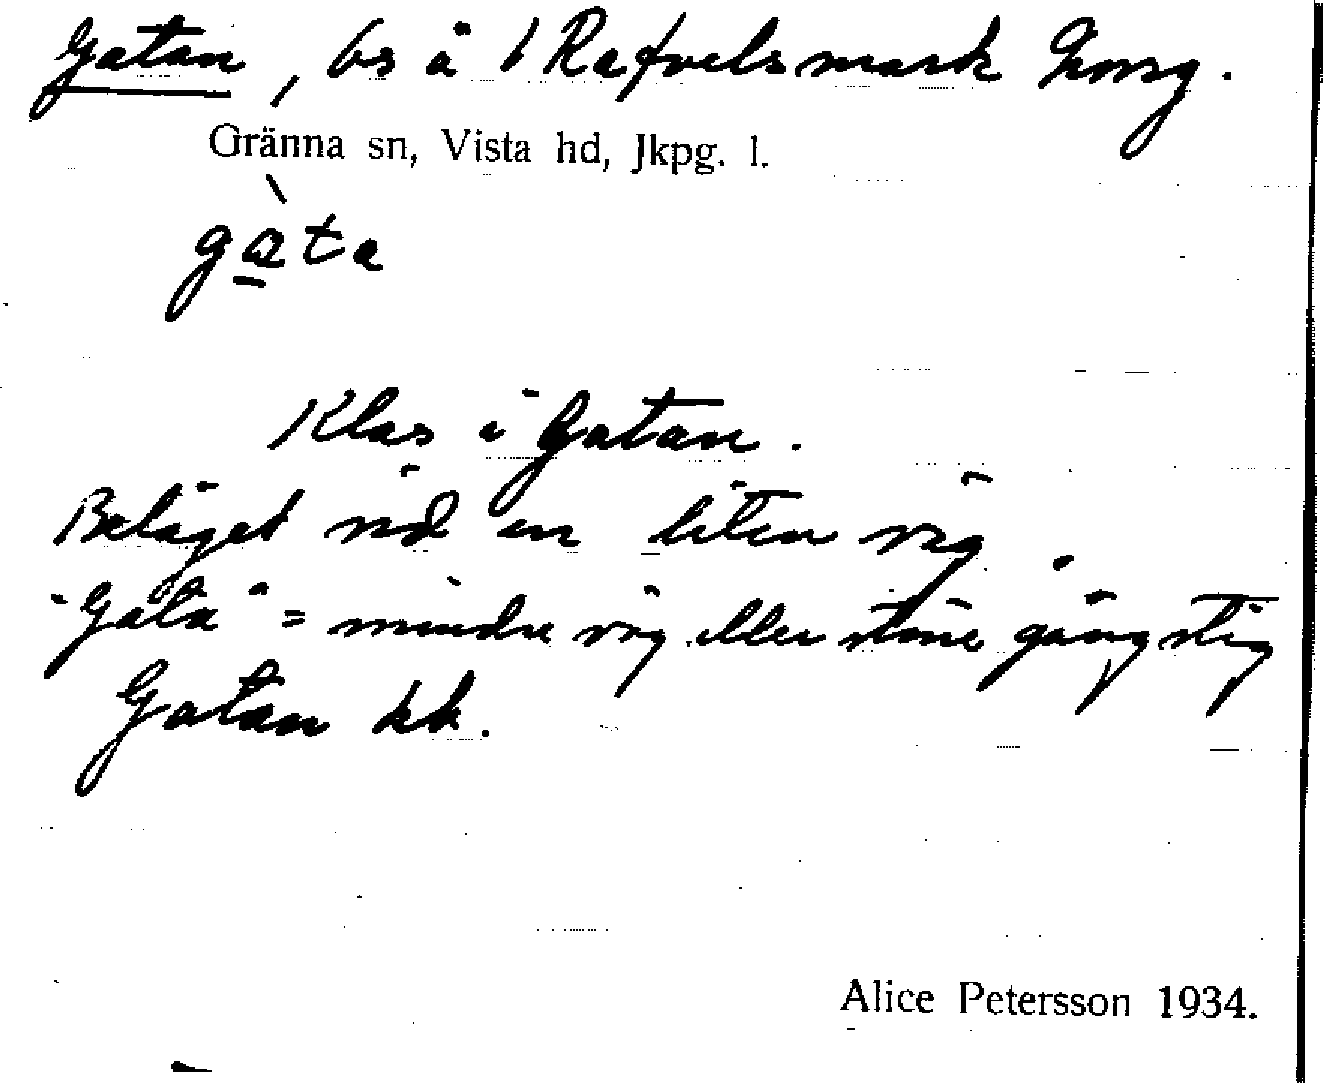 Gatan, bs å 1 Rafvelsmark
Gränna sn, Vista hd, Jkpg. l.
gàta
Klas i Gatan.
Beläget vid en liten väg.
"Gata" = mindre väg eller större gångstig
Gatan kk.
Alice Petersson 1934.